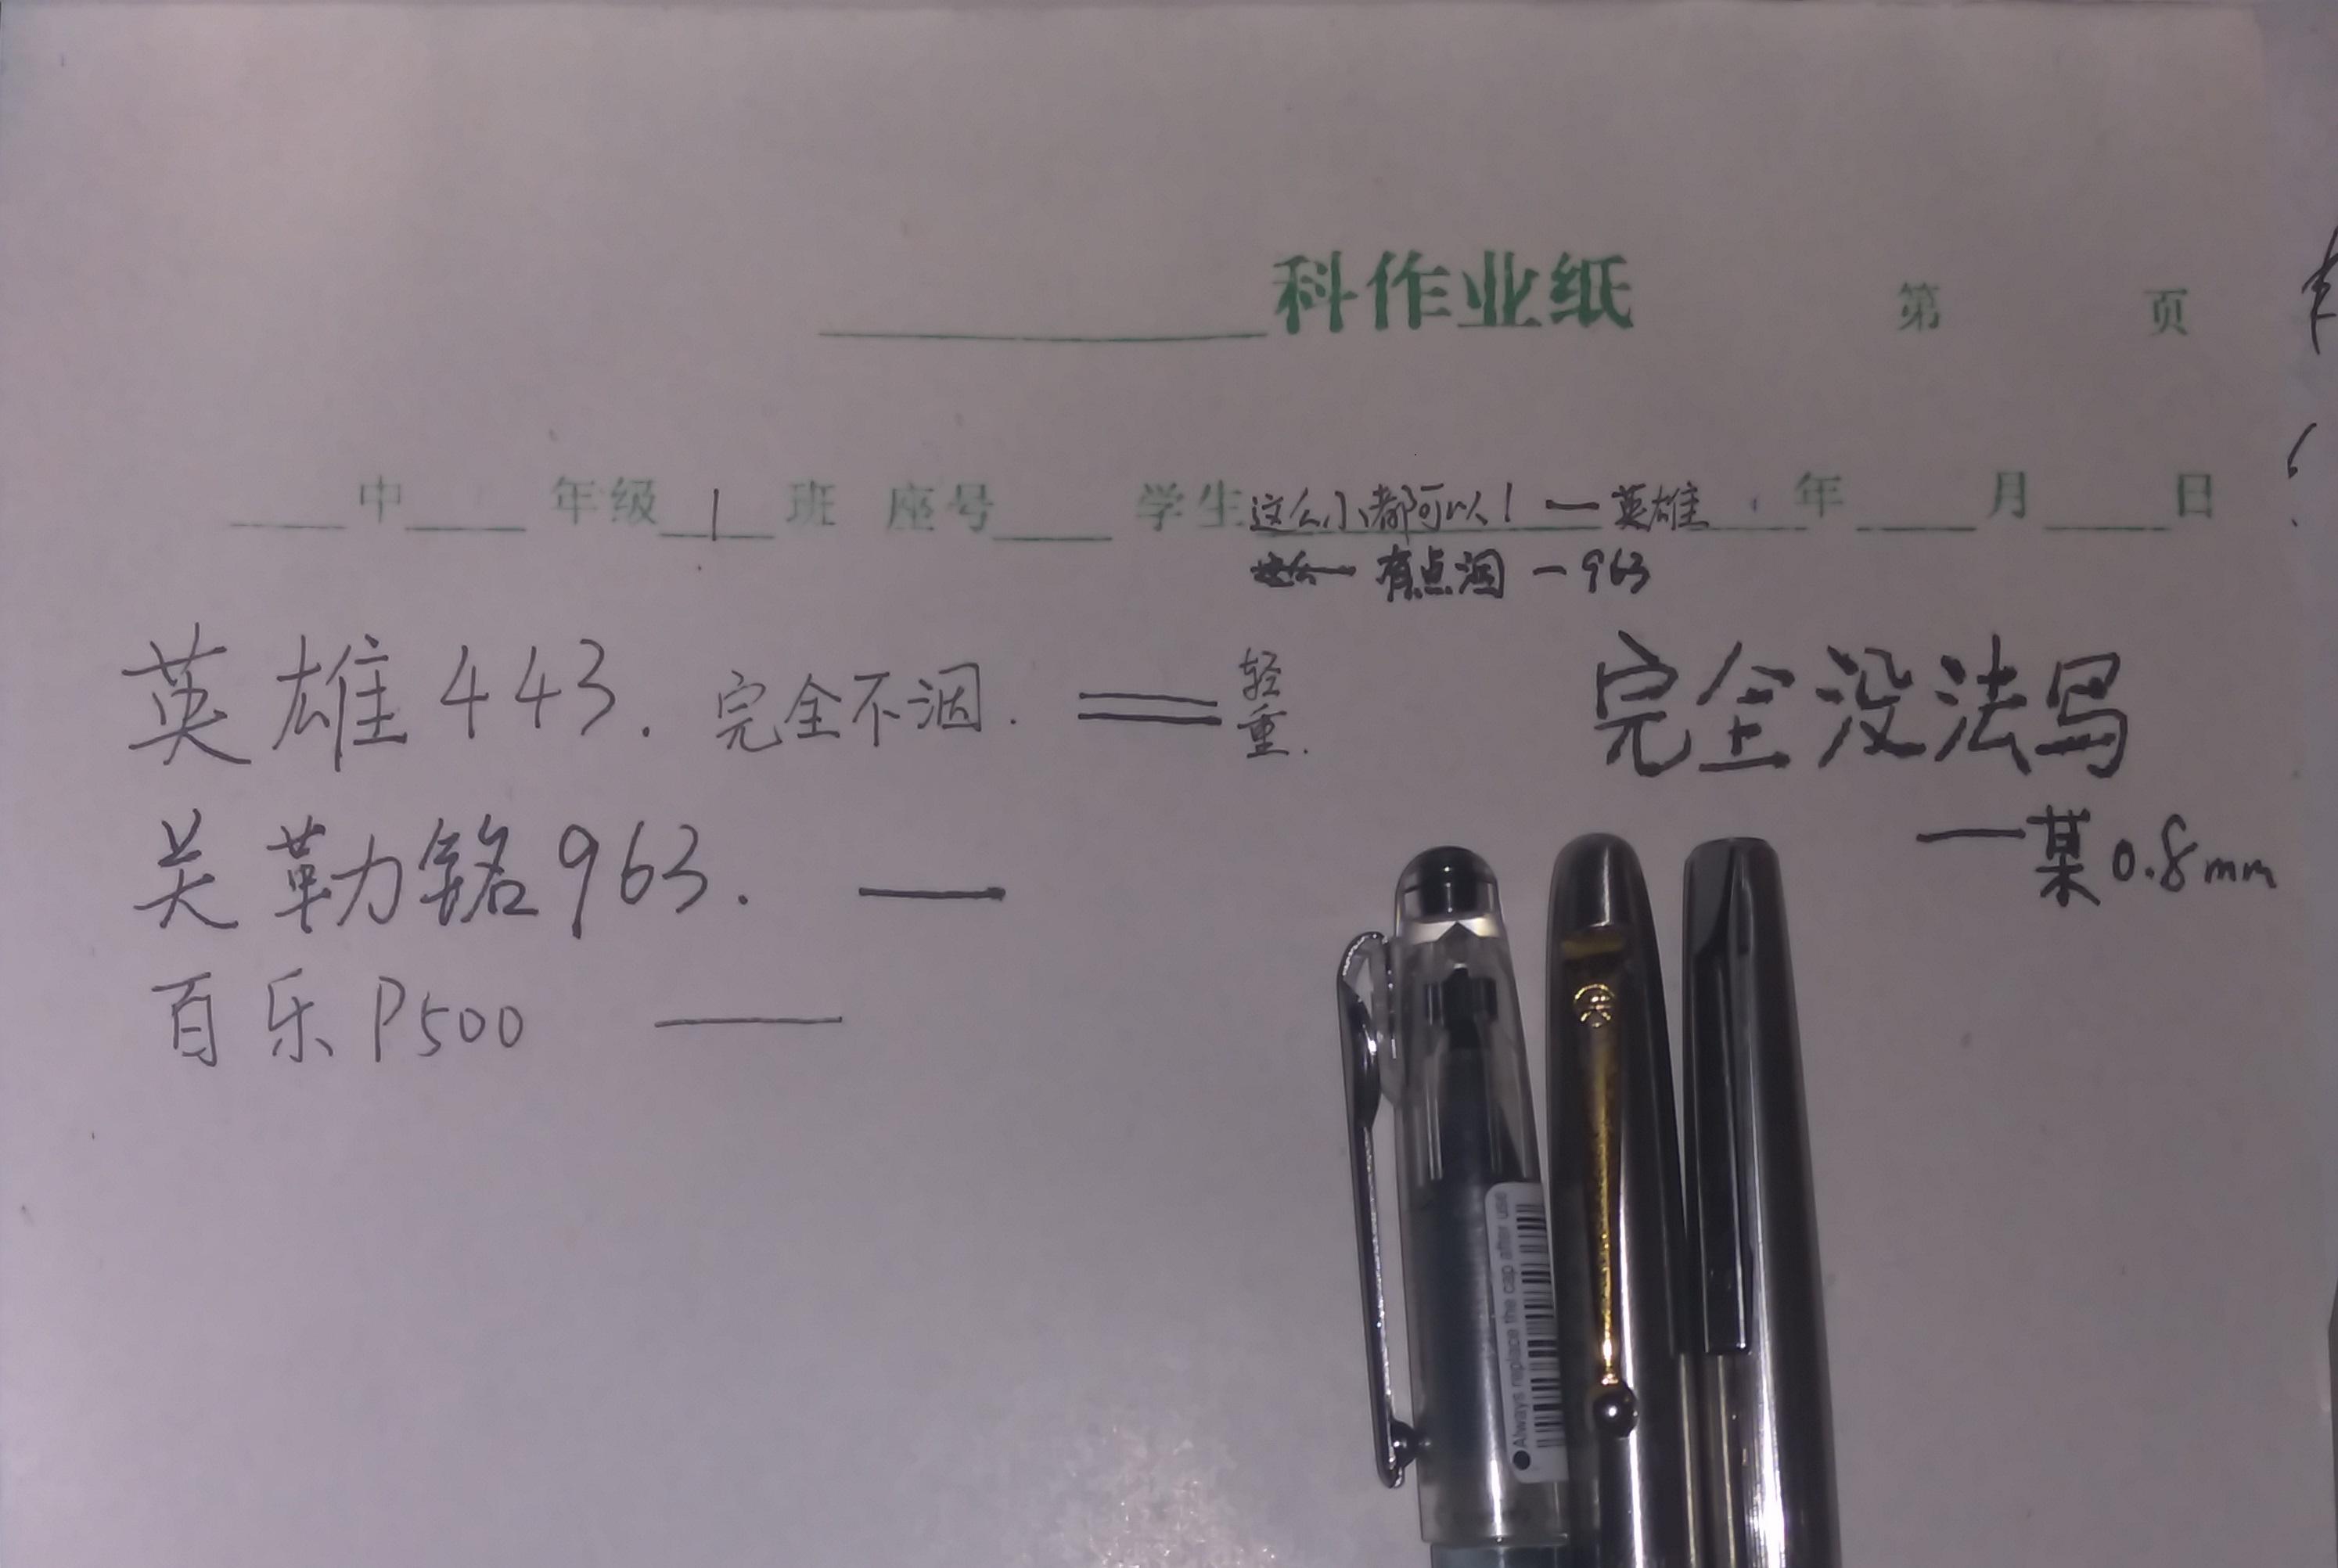 科作业纸 第 页
中 年级 1 班 座号 学生 这么小都可以！— 英雄 年 月 日
有点洇 — 963
英雄443. 完全不洇. 轻
重.
完全没法写
关勒铭963.
— 某0.8mm
百乐P500
Always replace the cap after use